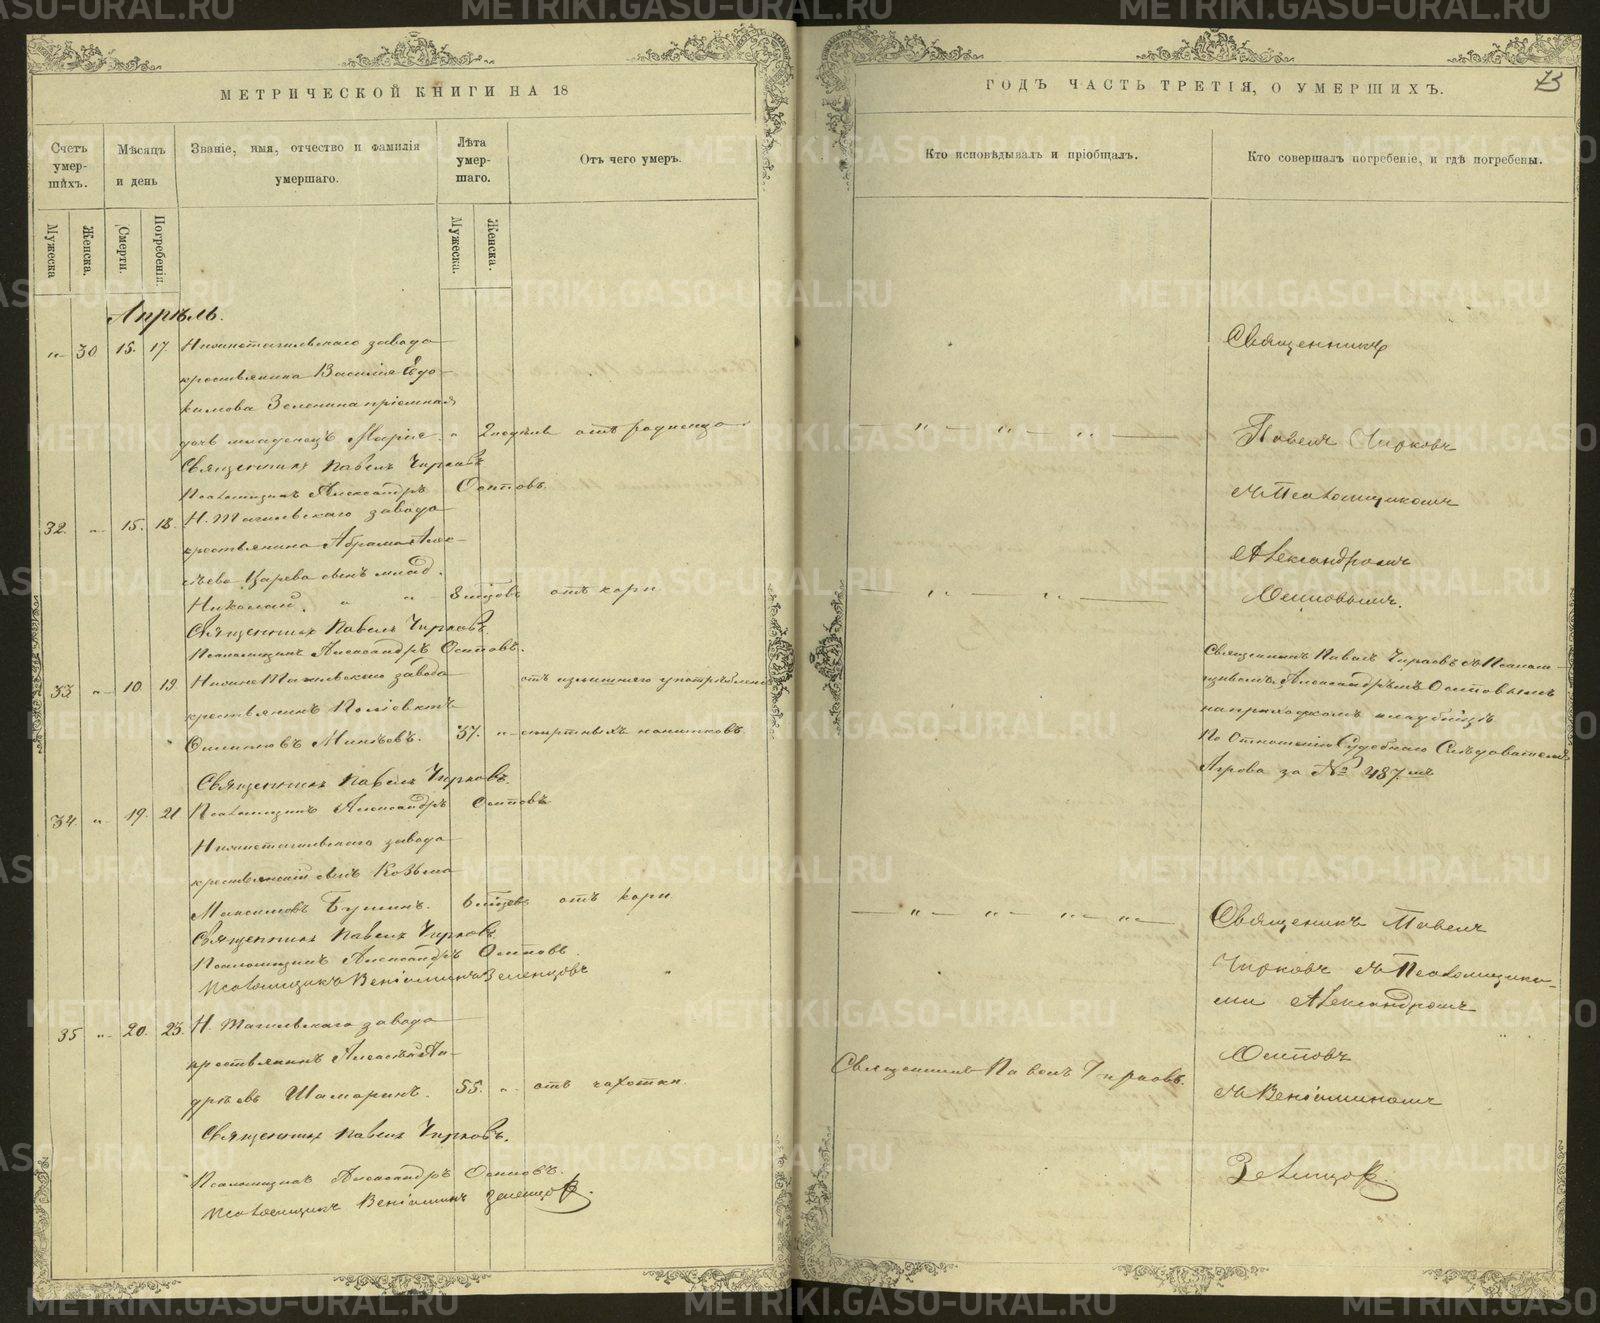 МЕТРИЧЕСКОЙ КНИГИ НА 18
Счетъ умер-шихъ.
Мѣсяцъ и день
Званіе, имя, отчество и фамилія умершаго.
Лѣта умер-шаго.
Отъ чего умеръ.
Мужеска
Женска.
Смерти.
Погребенія.
Мужеска.
Женска.
Апрѣль.
„ 30 15. 17 Нижнетагильскаго завода
крестьянина Василія Евдо-
кимова Зеленина пріемная
дочь младенецъ Марія. „ 2 недѣли отъ родимца
Священникъ Павелъ Чирковъ
Псаломщикъ Александръ Осиповъ.
32. „ 15. 18. Н. Тагильскаго завода
крестьянина Абрама Алек-
сѣева Царева сынъ млад.
Николай. „ „ 8 мѣсяцовъ отъ кори
Священникъ Павелъ Чирковъ.
Псаломщикъ Александръ Осиповъ.
33 „ 10. 19. Нижне Тагильскаго завода отъ излишняго употребленія
крестьянинъ
Минѣевъ. 37. „ спиртныхъ напитковъ
Священникъ Павелъ Чирковъ.
Псаломщикъ Александръ Осиповъ
34 „ 19. 21 Нижнетагильскаго завода
крестьянскій сынъ Козьма
Максимовъ 6 отъ кори
Священникъ Павелъ Чирковъ
Псаломщикъ Александръ Осиповъ.
Псаломщикъ Веніаминъ Зеленцовъ
35 „ 20. 23. Н. Тагильскаго завода
крестьянинъ Алексѣй Ан-
дрѣевъ Шамаринъ. 55. „ отъ чахотки.
Священникъ Павелъ Чирковъ.
Псаломщикъ Александръ Осиповъ.
Псаломщикъ Веніаминъ Зеленцовъ.
ГОДЪ ЧАСТЬ ТРЕТІЯ, О УМЕРШИХЪ.
73
Кто исповѣдывалъ и пріобщалъ.
Кто совершалъ погребеніе, и гдѣ погребены.
Священникъ
Павелъ Чирковъ
съ Псаломщикомъ
Александромъ
Осиповымъ.
Священникъ Павелъ Чирковъ съ Псалом-
щикомъ Александромъ Осиповымъ
на приходскомъ кладбищѣ
По Отношенію Судебнаго Слѣдователя
за № 487.
Священникъ Павелъ
Чирковъ съ Псаломщика-
ми Александромъ
Осиповъ
Священникъ Павелъ Чирковъ.
съ Веніаминомъ
Зеленцовъ.
METRIKI.GASO-URAL.RU